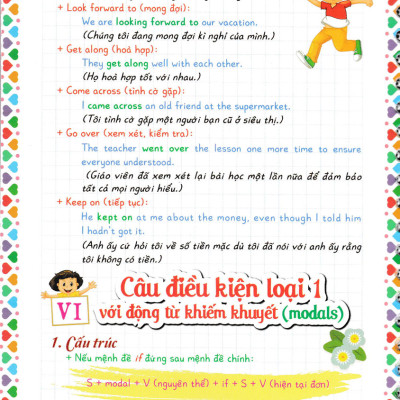 + Look forward to (mong đợi):
We are looking forward to our vacation.
(Chúng tôi đang mong đợi kì nghỉ của mình.)
+ Get along (hoà hợp):
They get along well with each other.
(Họ hoà hợp tốt với nhau.)
+ Come across (tình cờ gặp):
I came across an old friend at the supermarket.
(Tôi tình cờ gặp một người bạn cũ ở siêu thị.)
+ Go over (xem xét, kiểm tra):
The teacher went over the lesson one more time to ensure
everyone understood.
(Giáo viên đã xem xét lại bài học một lần nữa để đảm bảo
tất cả mọi người hiểu.)
+ Keep on (tiếp tục):
He kept on at me about the money, even though I told him
I hadn't got it.
(Anh ấy cứ hỏi tôi về số tiền mặc dù tôi đã nói với anh ấy rằng
tôi không có tiền.)
VI
Câu điều kiện loại 1
với động từ khiếm khuyết (modals)
1. Cấu trúc
+ Nếu mệnh đề if đứng sau mệnh đề chính:
S + modal + V (nguyên thể) + if + S + V (hiện tại đơn)